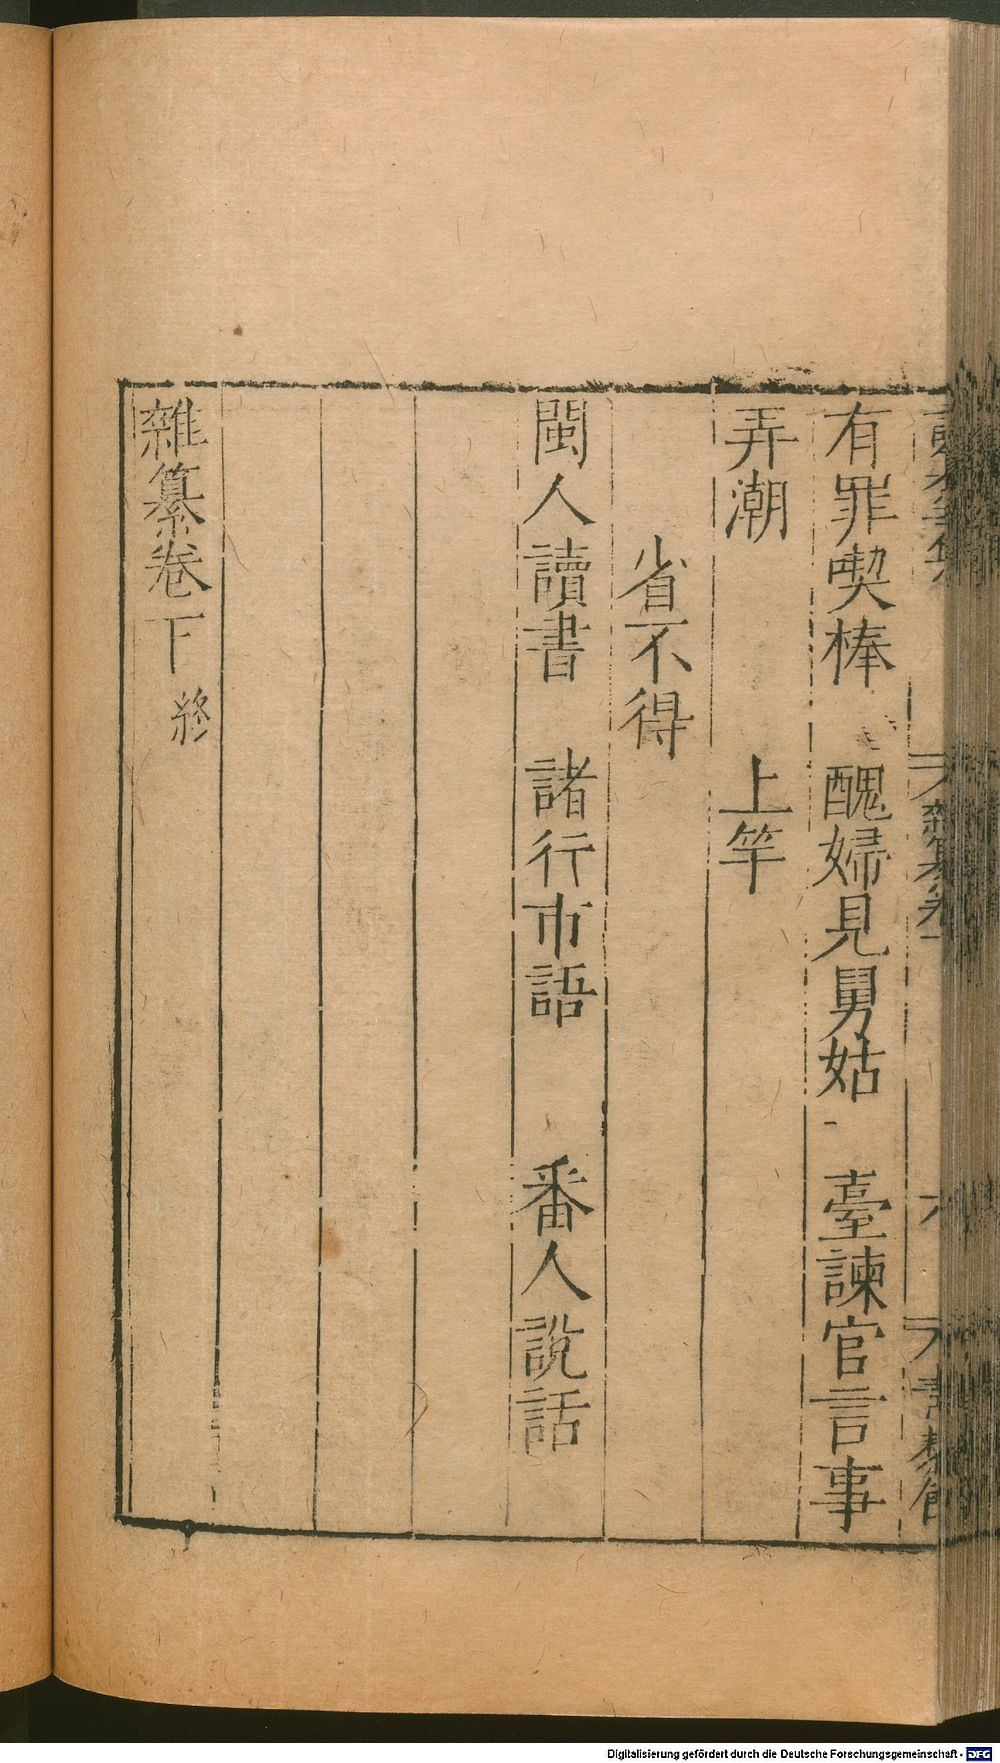 有罪喫棒　醜婦見舅姑　臺諫官言事
弄潮　上竿
省不得
閩人讀書　諸行市語　番人說話
雜纂卷下終
六
Digitalisierung gefördert durch die Deutsche Forschungsgemeinschaft - DFG